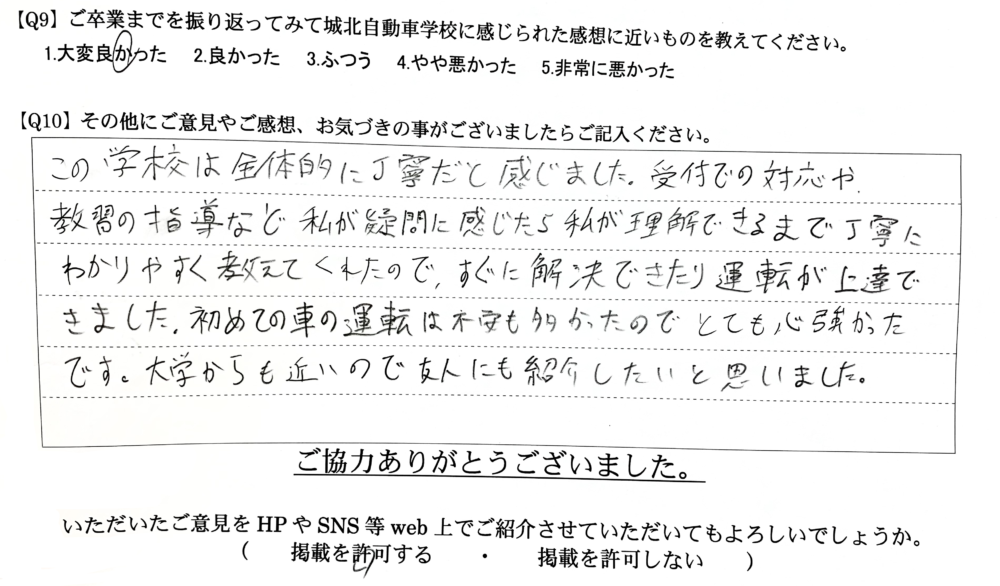 【Q9】ご卒業までを振り返ってみて城北自動車学校に感じられた感想に近いものを教えてください。
1.大変良かった 2.良かった 3.ふつう 4.やや悪かった 5.非常に悪かった
【Q10】その他にご意見やご感想、お気づきの事がございましたらご記入ください。
この学校は全体的に丁寧だと感じました。受付での対応や、
教習の指導などで私が疑問に感じたら私が理解できるまで丁寧に
わかりやすく教えてくれたので、すぐに解決できたり運転が上達で
きました。初めての車の運転は不安も多かったのでとても心強かった
です。大学からも近いので友人にも紹介したいと思いました。
ご協力ありがとうございました。
いただいたご意見をHPやSNS等web上でご紹介させていただいてもよろしいでしょうか。
( 掲載を許可する ・ 掲載を許可しない )